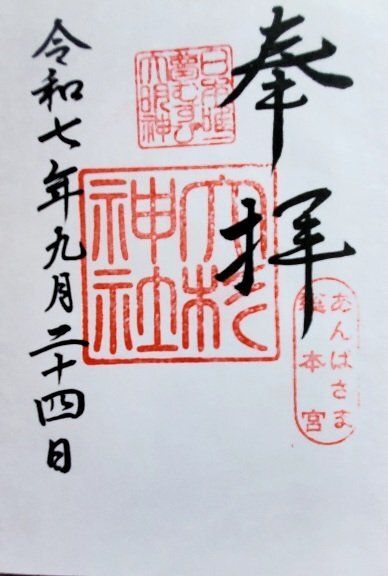 奉拝
あんばさま
総本宮
日本唯一
夢むすび
大明神
大杉
神社
令和七年九月二十四日